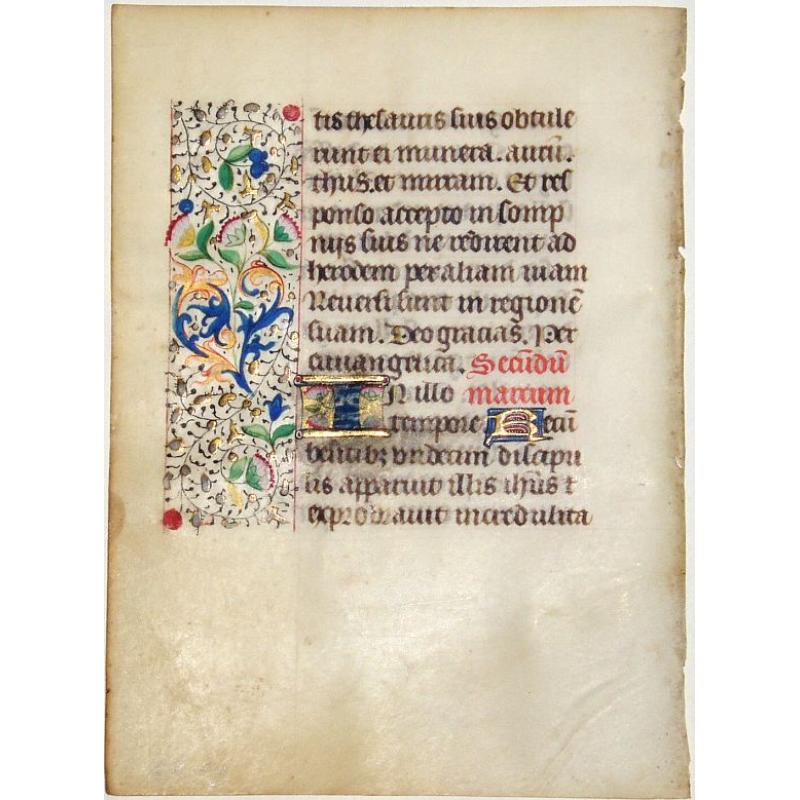 tis thesauris suis obtule
runt ei munera. aurū.
thus. et mirram. Et res
ponso accepto in somp
nijs suis ne redirent ad
herodem per aliam uiam
Reuersi sunt in regionē
suam. Deo gracias. Per
euuangelica. Secūdū
IN illo marcum
tempore Recū
bentibꝫ undecim discipu
lis apparuit illis ihūs ⁊
exprobrauit incredulita